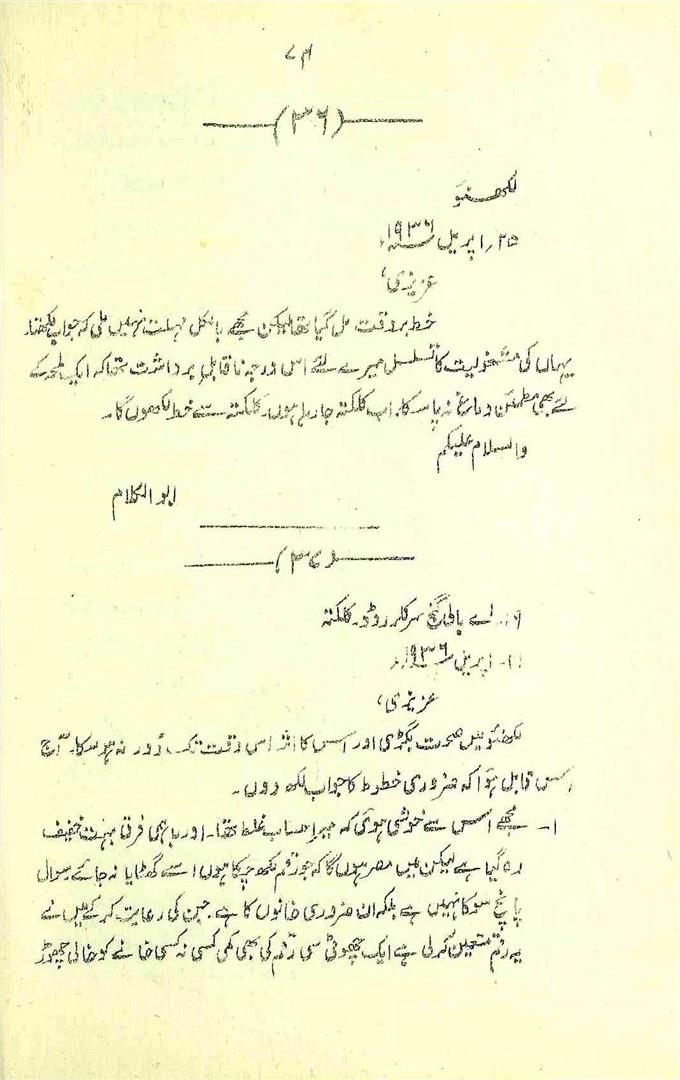 ۷۴
(۳۶)
لکھنؤ
۲۵؍اپریل ۱۹۳۶ء
عزیزی،
خط بر وقت مل گیا تھا لیکن مجھے بالکل مہلت نہیں ملی کہ جواب لکھتا۔
یہاں کی مشغولیت کا تسلسل میرے لئے اس درجہ ناقابلِ برداشت تھا کہ ایک لمحہ کے
لئے بھی مطمئن دماغ نہ پا سکا۔ اب کلکتہ جا رہا ہوں۔ کلکتہ سے خط لکھوں گا۔
والسلام علیکم
ابوالکلام
(۳۷)
۱۹۔ اے بالی گنج سرکلر روڈ۔ کلکتہ
اپریل ۱۹۳۶ء
عزیزی،
لکھنؤ میں صحت بگڑی اور اس کا اثر اس وقت تک دُور نہ ہو سکا۔ آج
اس قابل ہوا کہ ضروری خطوط کا جواب لکھ دوں۔
۱۔ مجھے اس سے خوشی ہوئی کہ میرا حساب غلط تھا۔ اور باہمی فرق بہت خفیف
رہ گیا ہے لیکن میں مصر ہوں گا کہ جو رقم لکھ چکا ہوں اسے گھٹایا نہ جائے سوال
پانچ سو کا نہیں ہے بلکہ ان ضروری خانوں کا ہے۔ جن کی رعایت کر کے میں نے
یہ رقم متعین کر لی ہے ایک چھوٹی سی رقم کی بھی کمی کسی نہ کسی خانے کو خالی چھوڑ